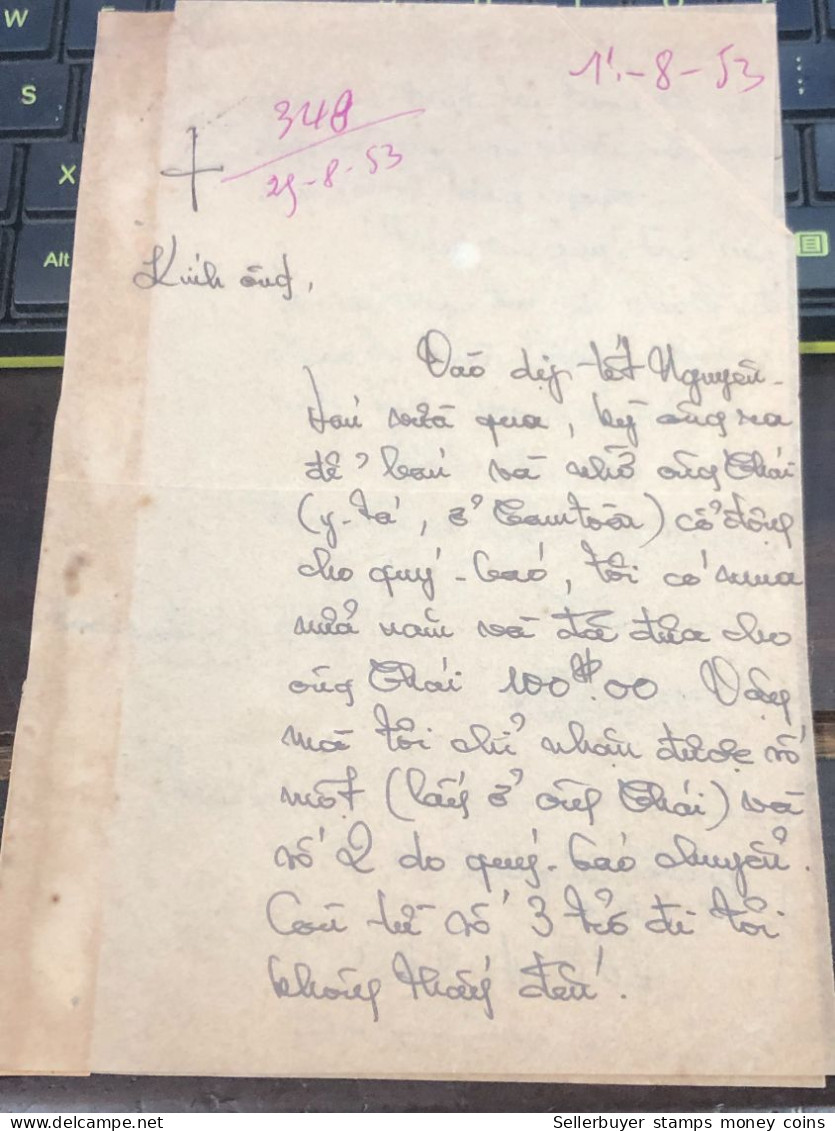 W
S
X
Alt
1-8-53
348
25-8-53
Kính ông,
Vào dịp tết Nguyên-
đán vừa qua, kỳ ông ra
để bán và nhờ ông Thái
(y-tá, ở) cổ động
cho quý-báo, tôi có mua
nửa năm và đã đưa cho
ông Thái 100$00 Vậy
mà tôi chỉ nhận được số
một (lấy ở ông Thái) và
số 2 do quý-báo chuyển.
Còn từ số 3 trở đi tôi
không thấy đến.
delcampe.net
Sellerbuyer stamps money coins